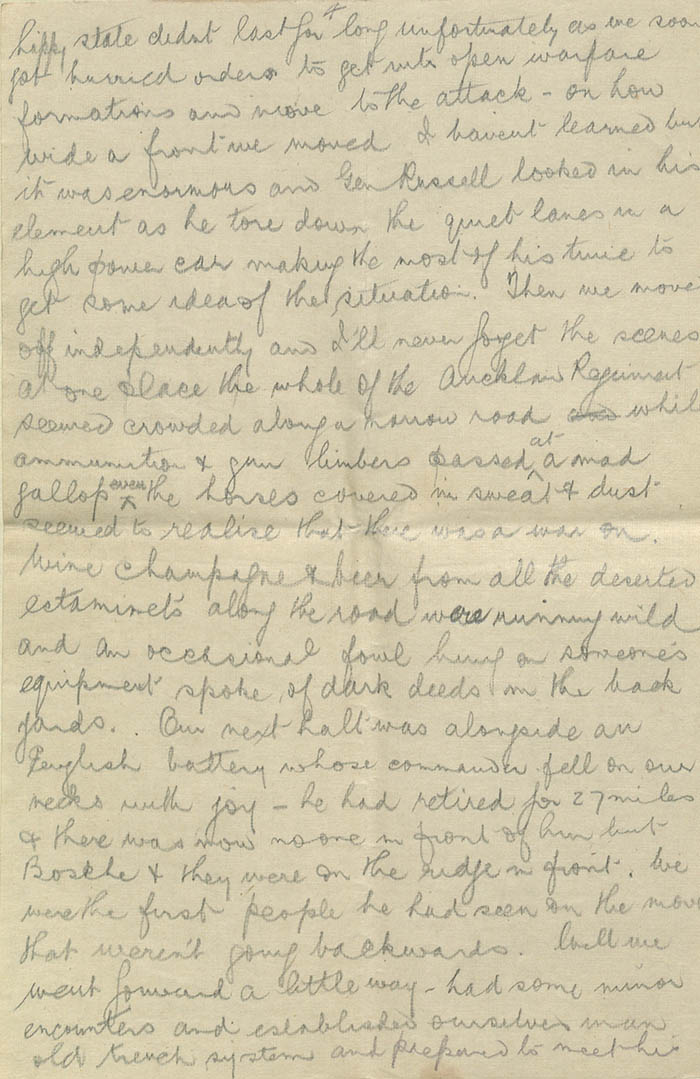 4
happy state didnt last for long unfortunately as we soon
got hurried orders to get into open warfare
formations and move to the attack - on how
wide a front we moved I havent learned but
it was enormous and Gen Russell looked in his
element as he tore down the quiet lanes in a
high power car making the most of his time to
get some idea of the situation. Then we moved
off independently and I'll never forget the scenes
at one place the whole of the Auckland Regiment
seemed crowded along a narrow road and while
ammunition & gun limbers passed at a mad
gallop even the horses covered in sweat & dust
seemed to realise that there was a war on.
Wine champagne & beer from all the deserted
estaminets along the road were running wild
and an occasional fowl hung on someone's
equipment spoke of dark deeds in the back
yards. . Our next halt was alongside an
English battery whose commander fell on our
necks with joy - he had retired for 27 miles
& there was now no one in front of him but
Bosche & they were on the ridge in front. We
were the first people he had seen on the move
that weren't going backwards. Well we
went forward a little way - had some minor
encounters and established ourselves in an
old trench system and prepared to meet his